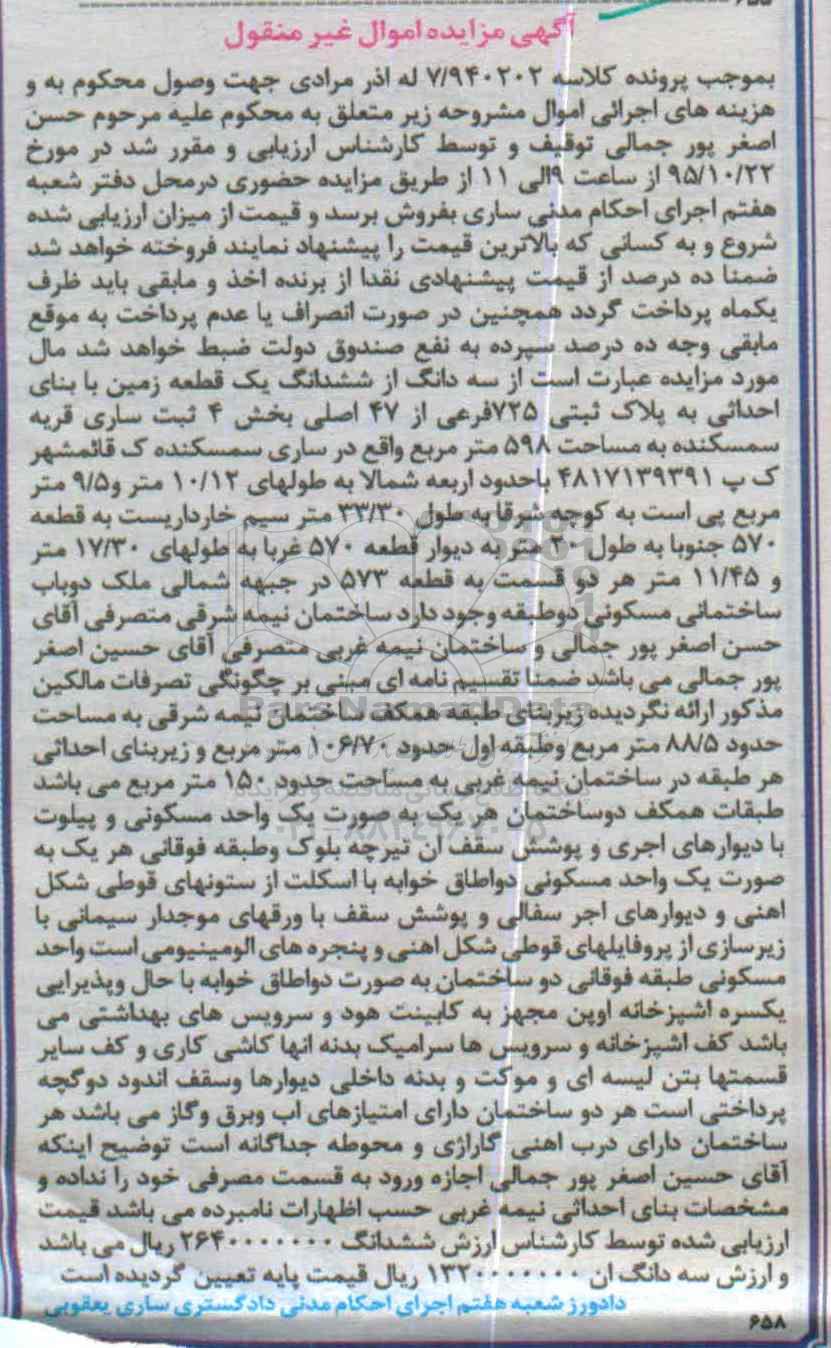 ۶۵۵
آگهی مزایده اموال غیر منقول
بموجب پرونده کلاسه ۷/۹۴۰۲۰۲ له اذر مرادی جهت وصول محکوم به و
هزینه های اجرائی اموال مشروحه زیر متعلق به محکوم علیه مرحوم حسن
اصغر پور جمالی توقیف و توسط کارشناس ارزیابی و مقرر شد در مورخ
۹۵/۱۰/۲۲ از ساعت ۹الی ۱۱ از طریق مزایده حضوری درمحل دفتر شعبه
هفتم اجرای احکام مدنی ساری بفروش برسد و قیمت از میزان ارزیابی شده
شروع و به کسانی که بالاترین قیمت را پیشنهاد نمایند فروخته خواهد شد
ضمنا ده درصد از قیمت پیشنهادی نقدا از برنده اخذ و مابقی باید ظرف
یکماه پرداخت گردد همچنین در صورت انصراف یا عدم پرداخت به موقع
مابقی وجه ده درصد سپرده به نفع صندوق دولت ضبط خواهد شد مال
مورد مزایده عبارت است از سه دانگ از ششدانگ یک قطعه زمین با بنای
احداثی به پلاک ثبتی ۷۲۵فرعی از ۴۷ اصلی بخش ۴ ثبت ساری قریه
سمسکنده به مساحت ۵۹۸ متر مربع واقع در ساری سمسکنده ک قائمشهر
ک پ ۴۸۱۷۱۳۹۳۹۱ باحدود اربعه شمالا به طولهای ۱۰/۱۲ متر و۹/۵ متر
مربع پی است به کوچه شرقا به طول ۳۳/۳۰ متر سیم خارداریست به قطعه
۵۷۰ جنوبا به طول ۲۰ متر به دیوار قطعه ۵۷۰ غربا به طولهای ۱۷/۳۰ متر
و ۱۱/۴۵ متر هر دو قسمت به قطعه ۵۷۳ در جبهه شمالی ملک دوباب
ساختمانی مسکونی دوطبقه وجود دارد ساختمان نیمه شرقی متصرفی آقای
حسن اصغر پور جمالی و ساختمان نیمه غربی متصرفی آقای حسین اصغر
پور جمالی می باشد ضمنا تقسیم نامه ای مبنی بر چگونگی تصرفات مالکین
مذکور ارائه نگردیده زیربنای طبقه همکف ساختمان نیمه شرقی به مساحت
حدود ۸۸/۵ متر مربع وطبقه اول حدود ۱۰۶/۷۰ متر مربع و زیربنای احداثی
هر طبقه در ساختمان نیمه غربی به مساحت حدود ۱۵۰ متر مربع می باشد
طبقات همکف دوساختمان هر یک به صورت یک واحد مسکونی و پیلوت
با دیوارهای اجری و پوشش سقف ان تیرچه بلوک وطبقه فوقانی هر یک به
صورت یک واحد مسکونی دواطاق خوابه با اسکلت از ستونهای قوطی شکل
اهنی و دیوارهای اجر سفالی و پوشش سقف با ورقهای موجدار سیمانی با
زیرسازی از پروفایلهای قوطی شکل اهنی و پنجره های الومینیومی است واحد
مسکونی طبقه فوقانی دو ساختمان به صورت دواطاق خوابه با حال وپذیرایی
یکسره اشپزخانه اوپن مجهز به کابینت هود و سرویس های بهداشتی می
باشد کف اشپزخانه و سرویس ها سرامیک بدنه انها کاشی کاری و کف سایر
قسمتها بتن لیسه ای و موکت و بدنه داخلی دیوارها وسقف اندود دوگچه
پرداختی است هر دو ساختمان دارای امتیازهای اب وبرق وگاز می باشد هر
ساختمان دارای درب اهنی گاراژی و محوطه جداگانه است توضیح اینکه
آقای حسین اصغر پور جمالی اجازه ورود به قسمت مصرفی خود را نداده و
مشخصات بنای احداثی نیمه غربی حسب اظهارات نامبرده می باشد قیمت
ارزیابی شده توسط کارشناس ارزش ششدانگ ۲۶۴۰۰۰۰۰۰۰ ریال می باشد
و ارزش سه دانگ ان ۱۳۲۰۰۰۰۰۰۰ ریال قیمت پایه تعیین گردیده است
دادورز شعبه هفتم اجرای احکام مدنی دادگستری ساری یعقوبی
۶۵۸
ParsNamadData